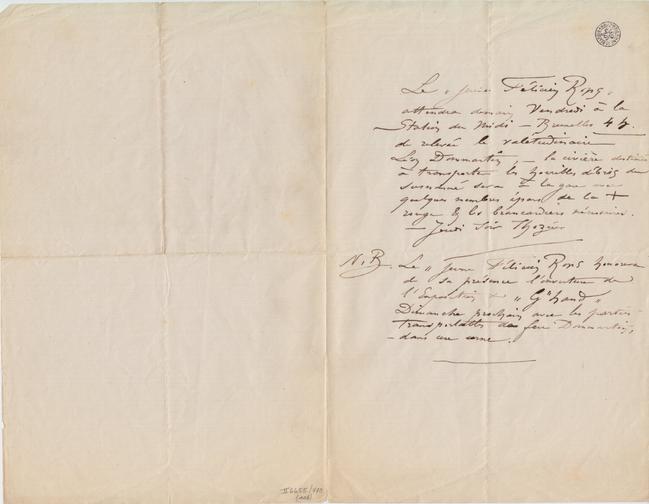 Le "jeune Félicien Rops"
attendra demain Vendredi à la
Station du Midi – Bruxelles 4 h.
de relevée le valétudinaire
Léon Dommartin, – la civière destinée
à transporter les horribles débris du
susnommé sera à la gare avec
quelques membres épars de la +
rouge & les brancardiers nécessaires.
– Jeudi Soir
N.B. Le "Jeune Félicien Rops honorera
de sa présence l'ouverture de
l'Exposition "G'hand"
Dimanche prochain avec les parties
transportables de feu Dommartin,
– dans une urne.
II 6655/